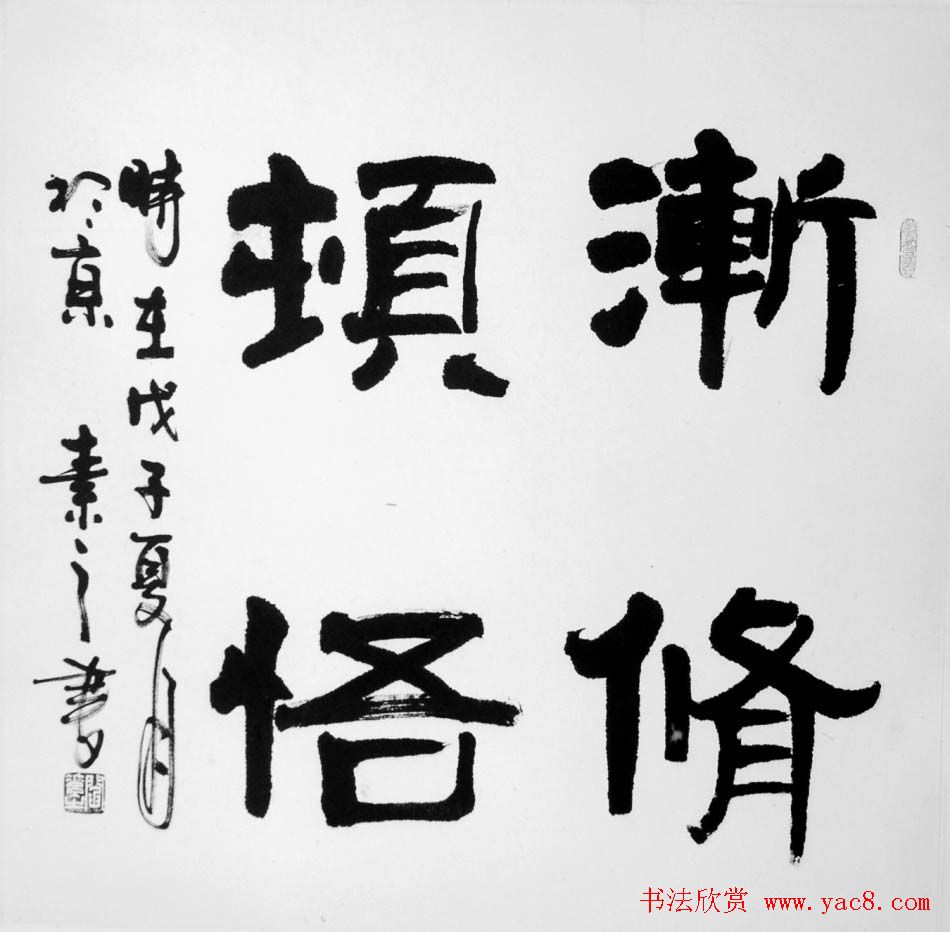 漸脩
頓悟
時在戊子夏月
於京 素之書
书法欣赏 www.yac8.com